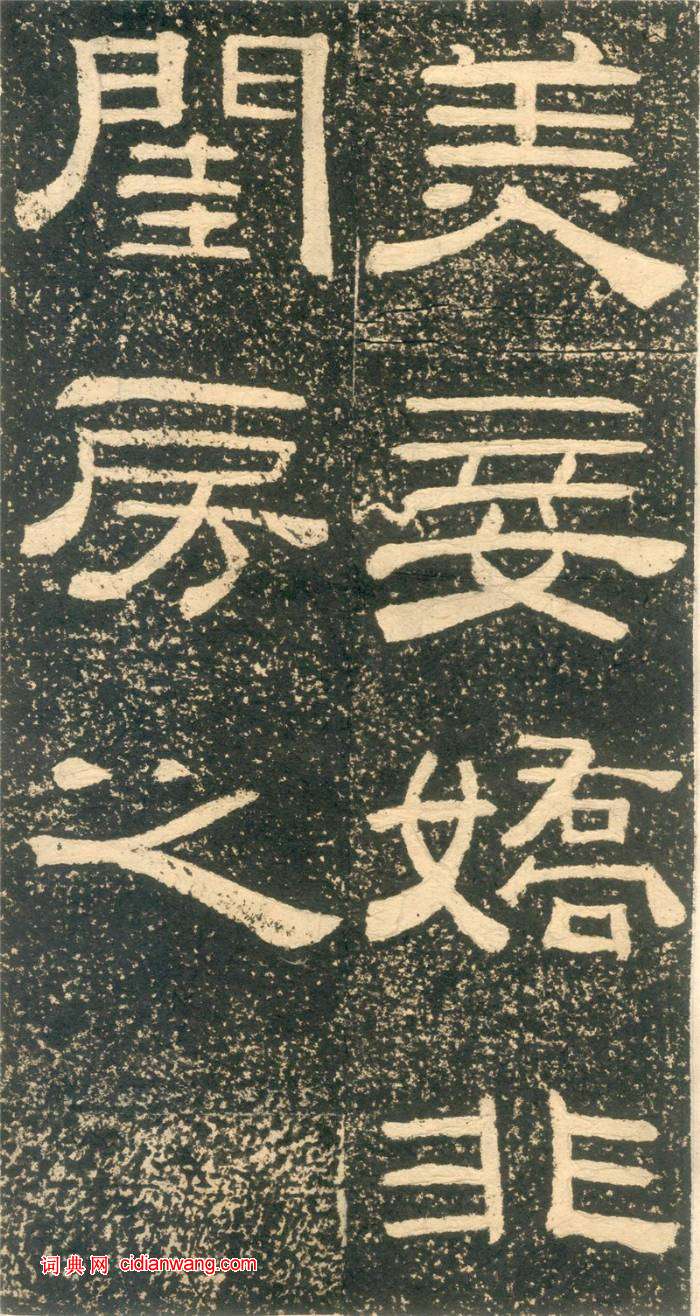 美妾嬌非
閨房之
词典网 cidianwang.com